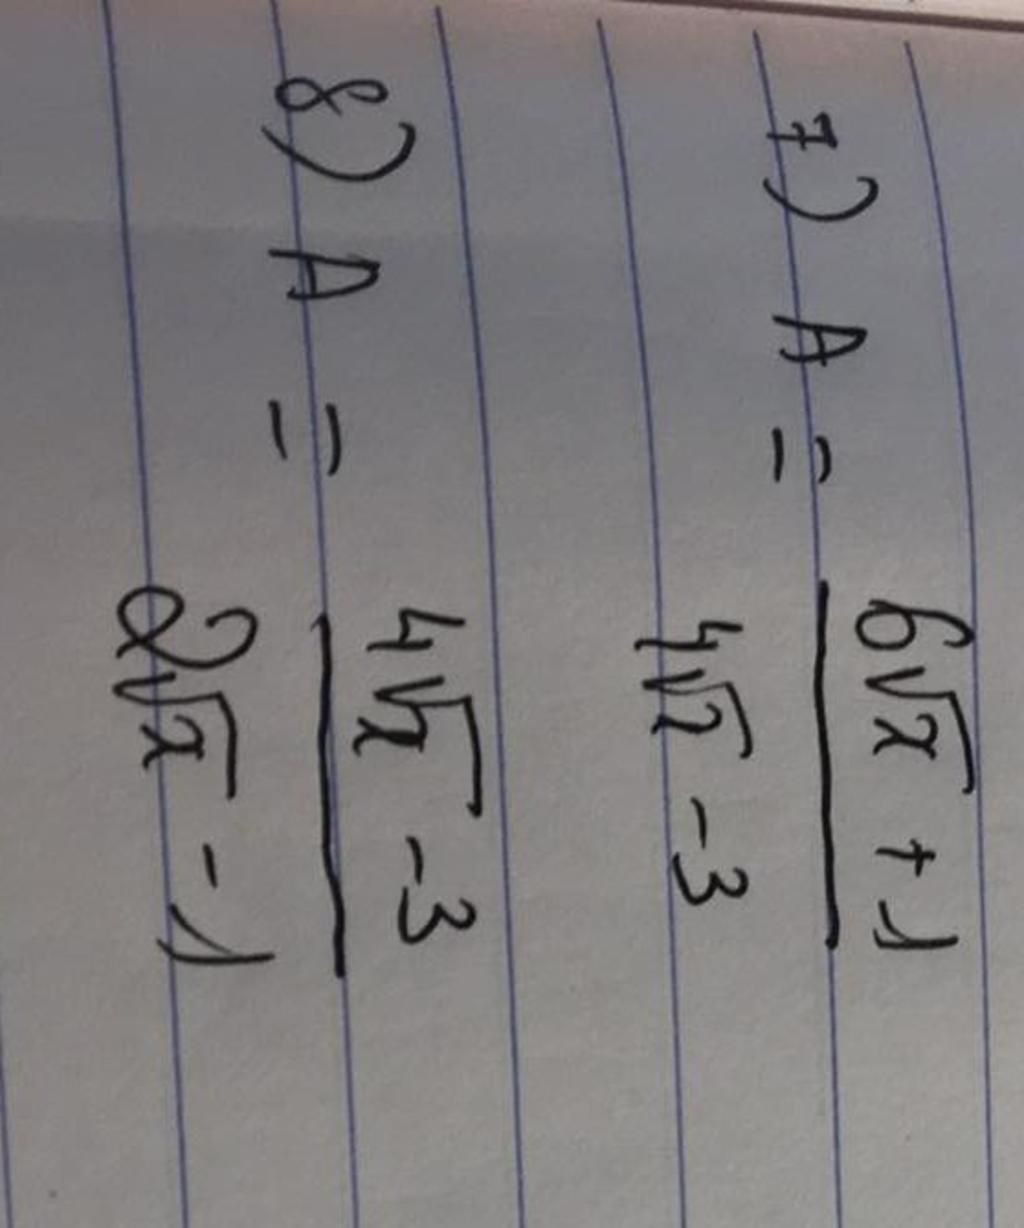 7) A = \frac{6\sqrt{x} + 1}{4\sqrt{x} - 3}
8) A = \frac{4\sqrt{x} - 3}{2\sqrt{x} - 1}